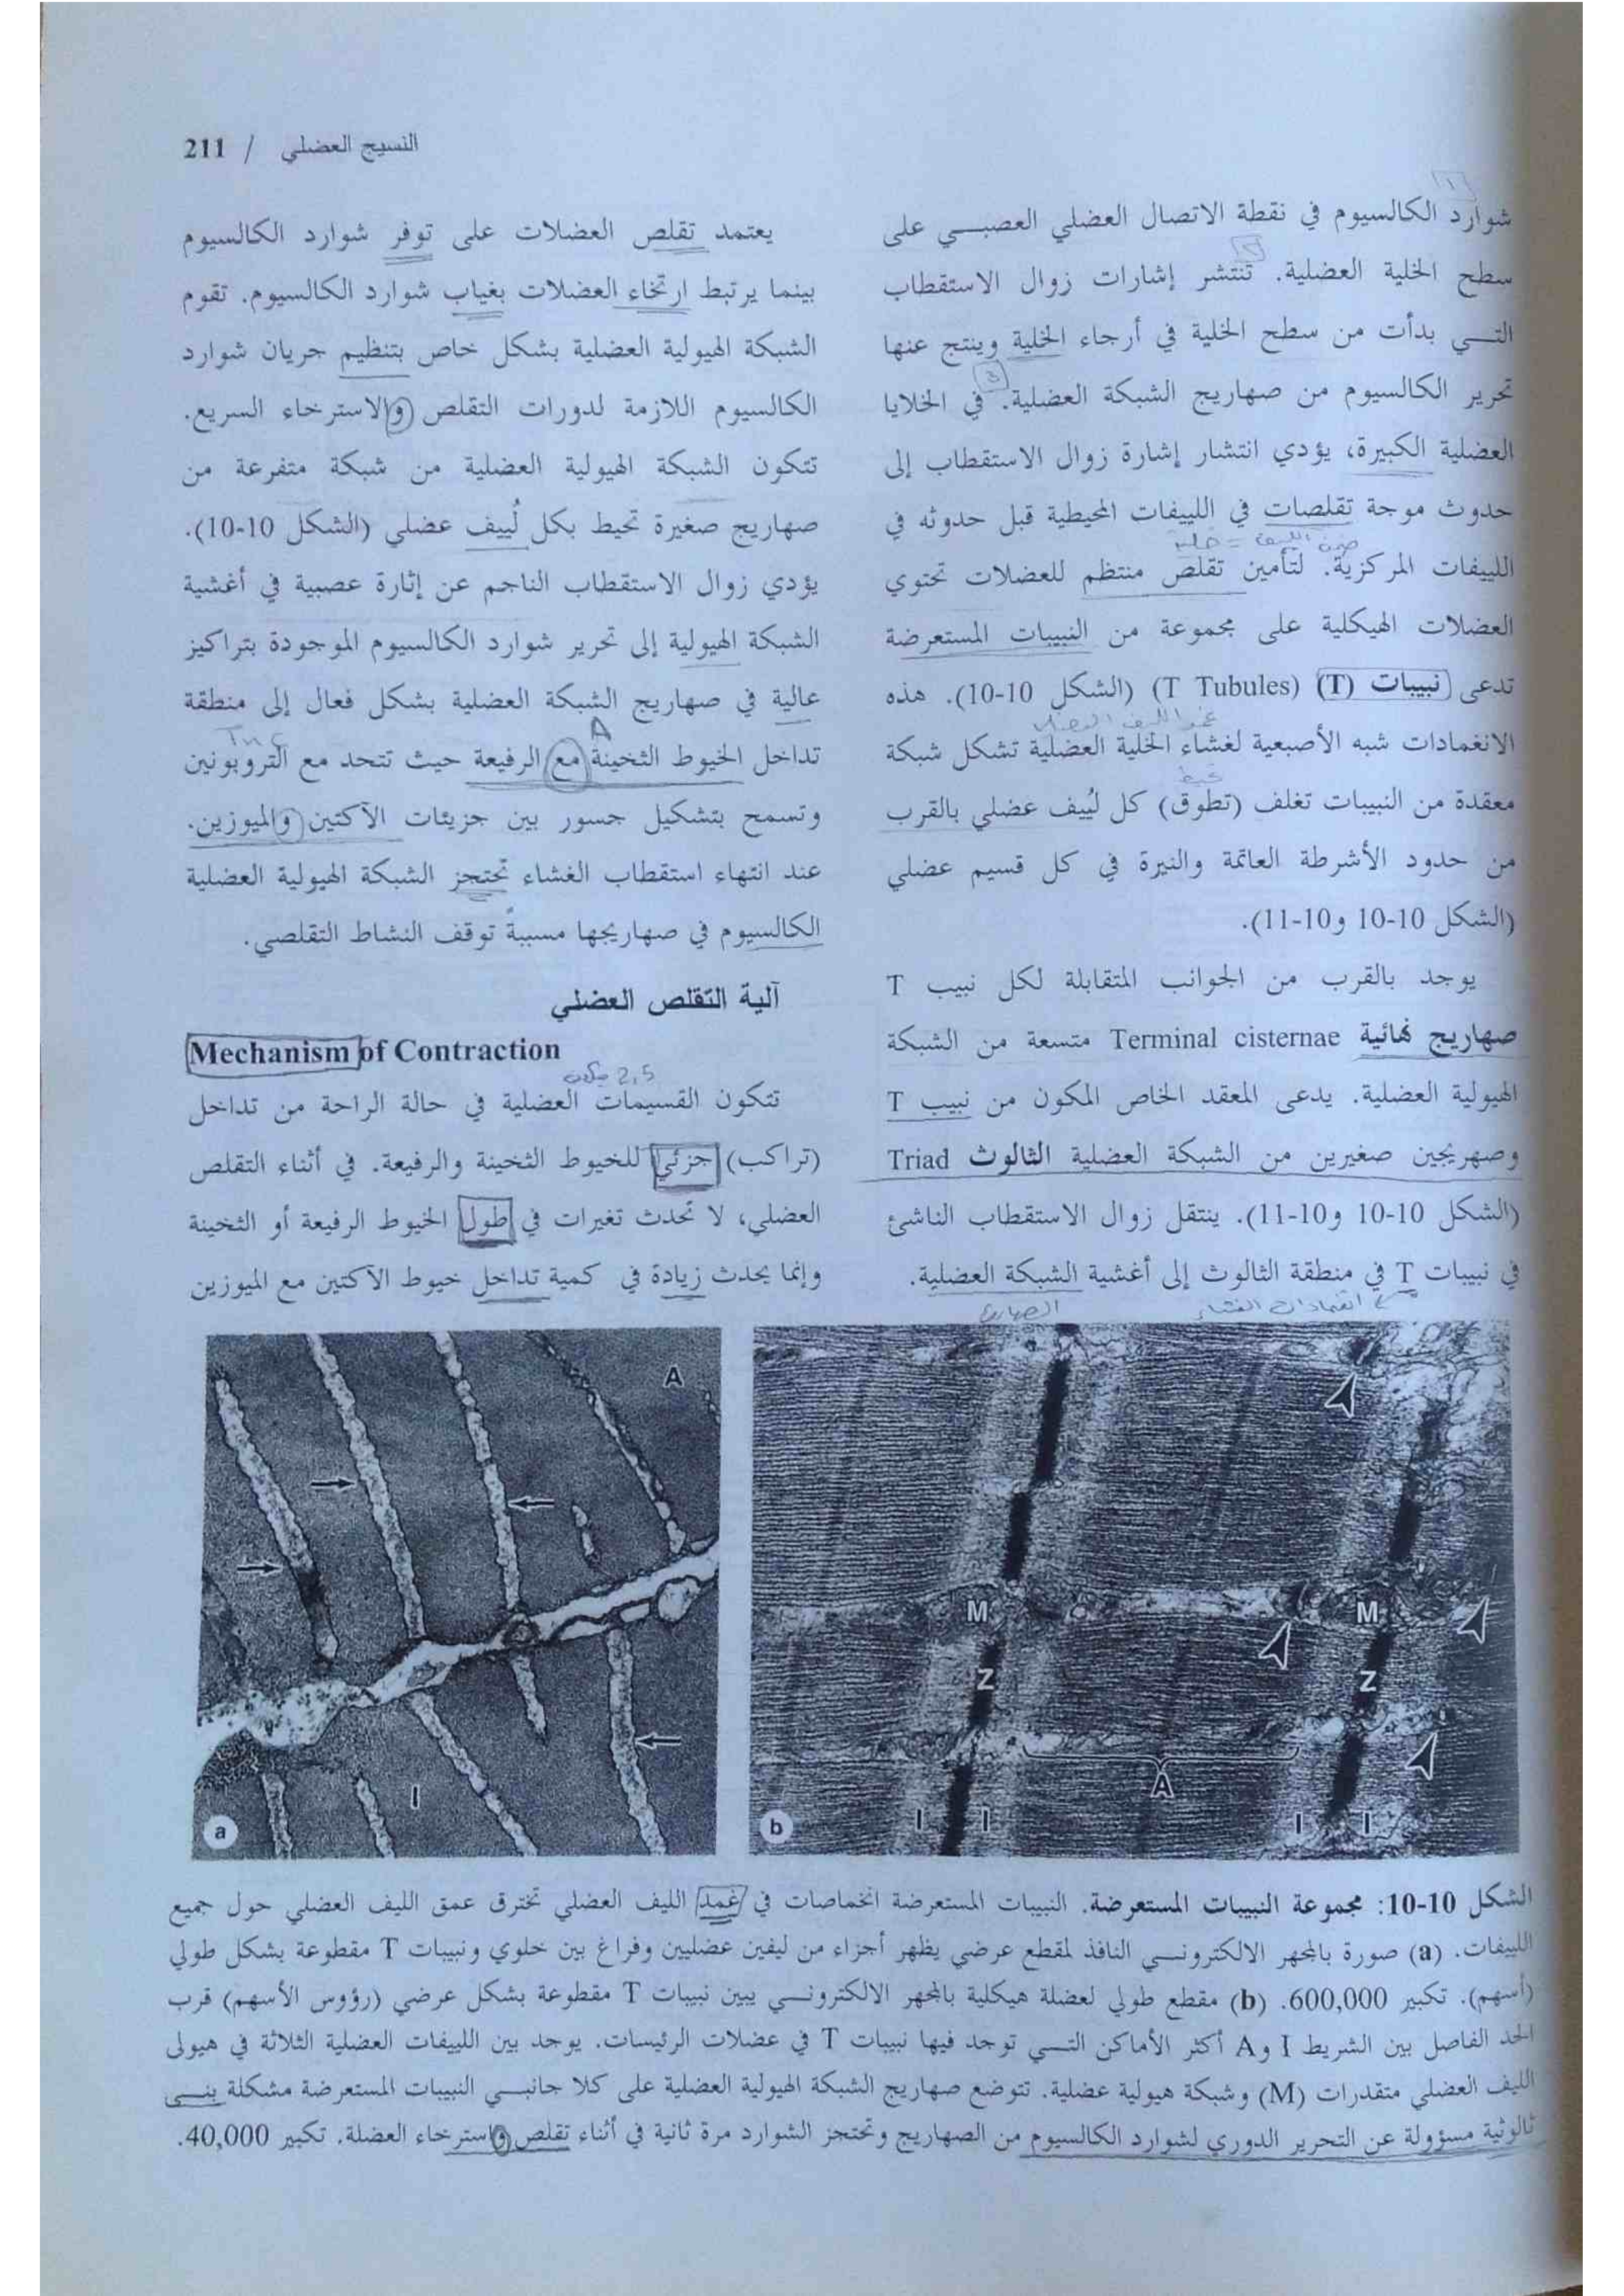 النسيج العضلي / 211
شوارد الكالسيوم في نقطة الاتصال العضلي العصبي على
سطح الخلية العضلية. تنتشر إشارات زوال الاستقطاب
التي بدأت من سطح الخلية في أرجاء الخلية وينتج عنها
تحرير الكالسيوم من صهاريج الشبكة العضلية. في الخلايا
العضلية الكبيرة، يؤدي انتشار إشارة زوال الاستقطاب إلى
حدوث موجة تقلصات في اللييفات المحيطية قبل حدوثه في
اللييفات المركزية. لتأمين تقلص منتظم للعضلات تحتوي
العضلات الهيكلية على مجموعة من النبيبات المستعرضة
تدعى نبيبات (T) (T Tubules) (الشكل 10-10). هذه
الانغمادات شبه الأصبعية لغشاء الخلية العضلية تشكل شبكة
معقدة من النبيبات تغلف (تطوق) كل لُييف عضلي بالقرب
من حدود الأشرطة العاتمة والنيرة في كل قسيم عضلي
(الشكل 10-10 و10-11).
يوجد بالقرب من الجوانب المتقابلة لكل نبيب T
صهاريج نهائية Terminal cisternae متسعة من الشبكة
الهيولية العضلية. يدعى المعقد الخاص المكون من نبيب T
وصهريجين صغيرين من الشبكة العضلية الثالوث Triad
(الشكل 10-10 و10-11). ينتقل زوال الاستقطاب الناشئ
في نبيبات T في منطقة الثالوث إلى أغشية الشبكة العضلية.
يعتمد تقلص العضلات على توفر شوارد الكالسيوم
بينما يرتبط ارتخاء العضلات بغياب شوارد الكالسيوم. تقوم
الشبكة الهيولية العضلية بشكل خاص بتنظيم جريان شوارد
الكالسيوم اللازمة لدورات التقلص والاسترخاء السريع.
تتكون الشبكة الهيولية العضلية من شبكة متفرعة من
صهاريج صغيرة تحيط بكل لُييف عضلي (الشكل 10-10).
يؤدي زوال الاستقطاب الناجم عن إثارة عصبية في أغشية
الشبكة الهيولية إلى تحرير شوارد الكالسيوم الموجودة بتراكيز
عالية في صهاريج الشبكة العضلية بشكل فعال إلى منطقة
A
TnC
تداخل الخيوط الثخينة مع الرفيعة حيث تتحد مع التروبونين
وتسمح بتشكيل جسور بين جزيئات الآكتين والميوزين.
عند انتهاء استقطاب الغشاء تحتجز الشبكة الهيولية العضلية
الكالسيوم في صهاريجها مسببةً توقف النشاط التقلصي.
آلية التقلص العضلي
Mechanism of Contraction
2,5
تتكون القسيمات العضلية في حالة الراحة من تداخل
(تراكب) جزئي للخيوط الثخينة والرفيعة. في أثناء التقلص
العضلي، لا تحدث تغيرات في طول الخيوط الرفيعة أو الثخينة
وإنما يحدث زيادة في كمية تداخل خيوط الآكتين مع الميوزين
A
I
a
M
M
Z
Z
A
I
I
I
I
b
الشكل 10-10: مجموعة النبيبات المستعرضة. النبيبات المستعرضة انخماصات في غمد الليف العضلي تخترق عمق الليف العضلي حول جميع
اللييفات. (a) صورة بالمجهر الالكتروني النافذ لمقطع عرضي يظهر أجزاء من ليفين عضليين وفراغ بين خلوي ونبيبات T مقطوعة بشكل طولي
(أسهم). تكبير 600,000. (b) مقطع طولي لعضلة هيكلية بالمجهر الالكتروني يبين نبيبات T مقطوعة بشكل عرضي (رؤوس الأسهم) قرب
الحد الفاصل بين الشريط I وA أكثر الأماكن التي توجد فيها نبيبات T في عضلات الرئيسات. يوجد بين اللييفات العضلية الثلاثة في هيولى
الليف العضلي متقدرات (M) وشبكة هيولية عضلية. تتوضع صهاريج الشبكة الهيولية العضلية على كلا جانبي النبيبات المستعرضة مشكلة بنى
ثالوثية مسؤولة عن التحرير الدوري لشوارد الكالسيوم من الصهاريج وتحتجز الشوارد مرة ثانية في أثناء تقلص واسترخاء العضلة. تكبير 40,000.